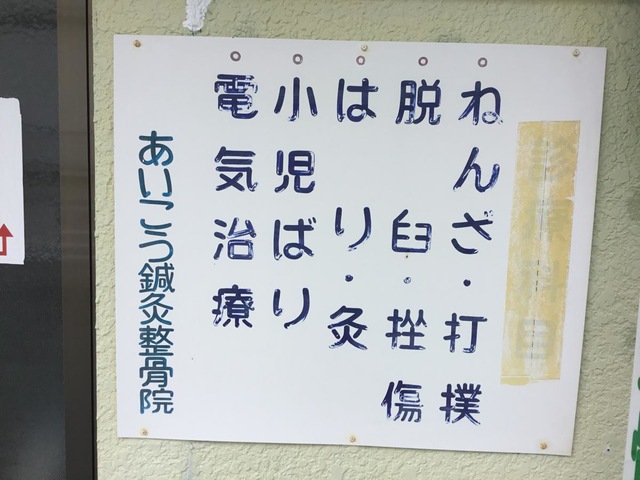 ねんざ・打撲
脱臼・挫傷
はり・灸
小児ばり
電気治療
あいこう鍼灸整骨院